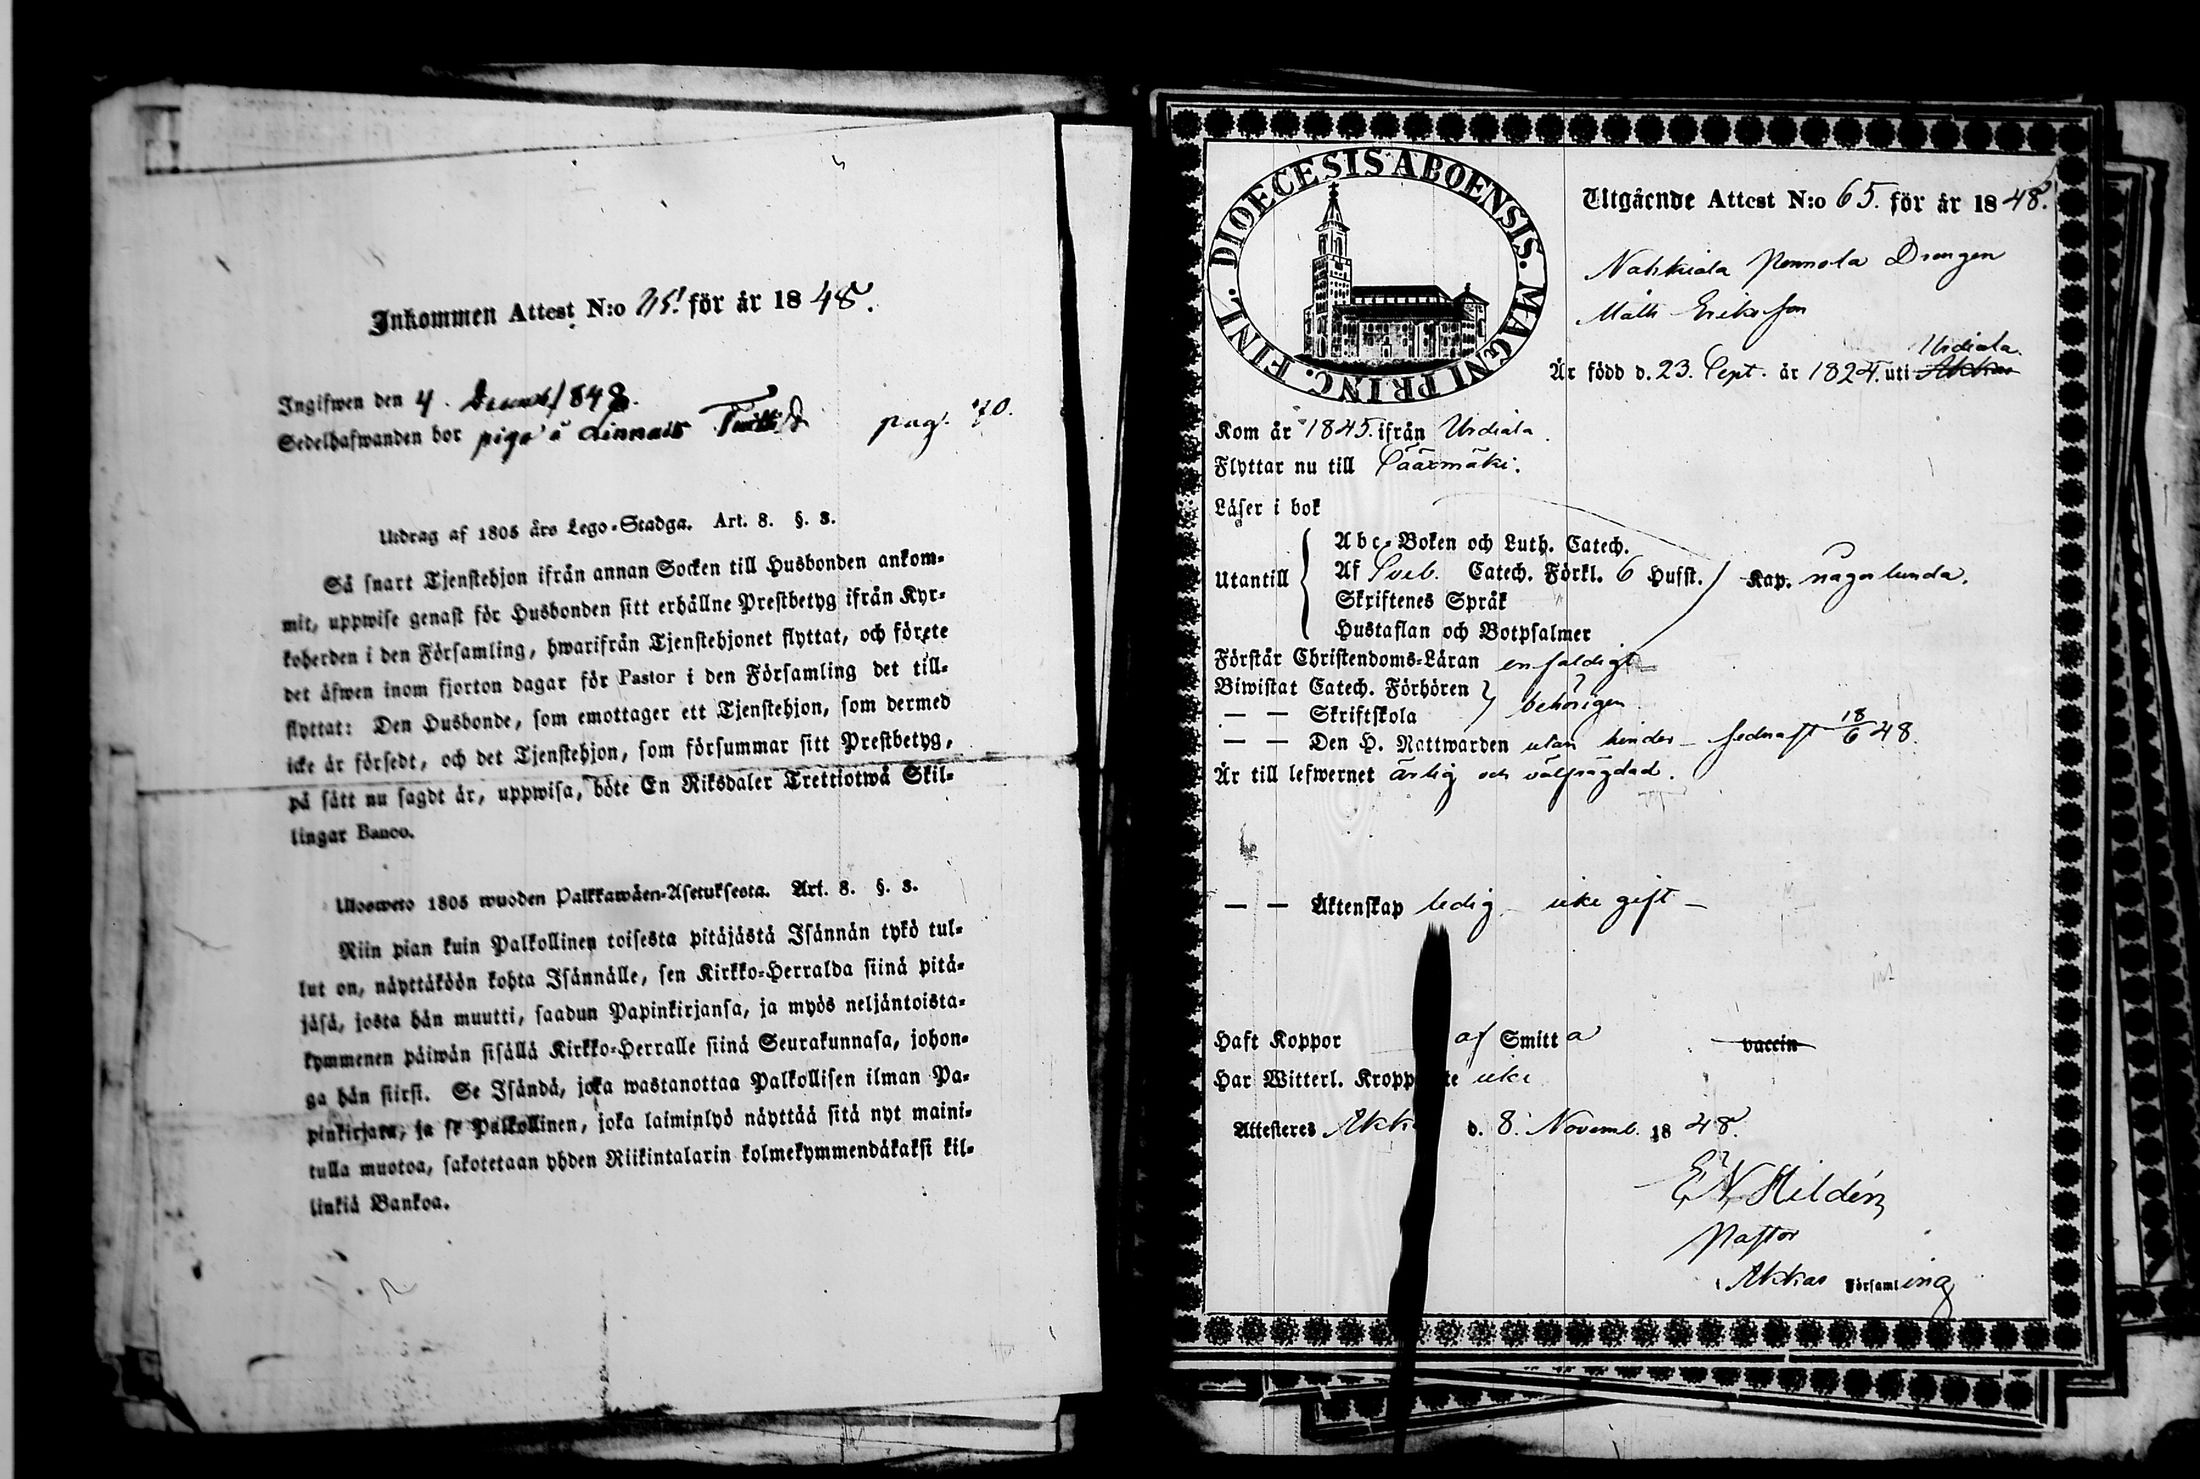 Inkommen Attest N:o för år 1848.
Ingifwen den 4. 1848.
Sedelhafwanden bor piga å pag. 70.
Utdrag af 1805 års Lego-Stadga. Art. 8. §. 3.
Så snart Tjenstehjon ifrån annan Socken till Husbonden ankom-
mit, uppwise genast för Husbonden sitt erhållne Prestbetyg ifrån Kyr-
koherden i den Församling, hwarifrån Tjenstehjonet flyttat, och förete
det äfwen inom fjorton dagar för Pastor i den Församling det till-
flyttat: Den Husbonde, som emottager ett Tjenstehjon, som dermed
icke är försedt, och det Tjenstehjon, som försummar sitt Prestbetyg,
på sätt nu sagdt är, uppwisa, böte En Riksdaler Trettiotwå Skil-
lingar Banco.
Ulosweto 1805 wuoden Palkkawäen-Asetuksesta. Art. 8. §. 3.
Niin pian kuin Palkollinen toisesta pitäjästä Isännän tykö tul-
lut on, näyttäköön kohta Isännälle, sen Kirkko-Herralda siinä pitä-
jäsä, josta hän muutti, saadun Papinkirjansa, ja myös neljäntoista-
kymmenen päiwän sisällä Kirkko-Herralle siinä Seurakunnasa, johon-
ga hän siirsi. Se Isändä, joka wastanottaa Palkollisen ilman Pa-
pinkirjata, ja se Palkollinen, joka laiminlyö näyttää sitä nyt maini-
tulla muotoa, sakotetaan yhden Riikintalarin kolmekymmendäkaksi kil-
linkiä Bankoa.
DIOECESIS ABOENSIS. MAGNI PRINC. FINL.
Utgående Attest N:o 65. för år 1848.
Nahkiala Pennola Drengen
Matts Eriksson
Urdiala
Är född d. 23. Sept. år 1824. uti Akkas
Kom år 1845. ifrån Urdiala.
Flyttar nu till Sääxmäki.
Läser i bok
Abc-Boken och Luth. Catech.
Utantill Af Sveb. Catech. Förkl. 6 Hufst. Kap. någorlunda.
Skriftenes Språk
Hustaflan och Botpsalmer
Förstår Christendoms-Läran enfaldigt
Biwistat Catech. Förhören
— — Skriftskola behörigen
— — Den H. Nattwarden utan hinder – sednast 18/6 48.
Är till lefwernet ärlig och välfrägdad.
— — Äktenskap ledig – icke gift –
Haft Koppor af Smitta vaccin
Har Witterl. Kropp te icke
Attesteras Akk d. 8. Novemb. 1848.
Hildén
Pastor
Akkas Församling